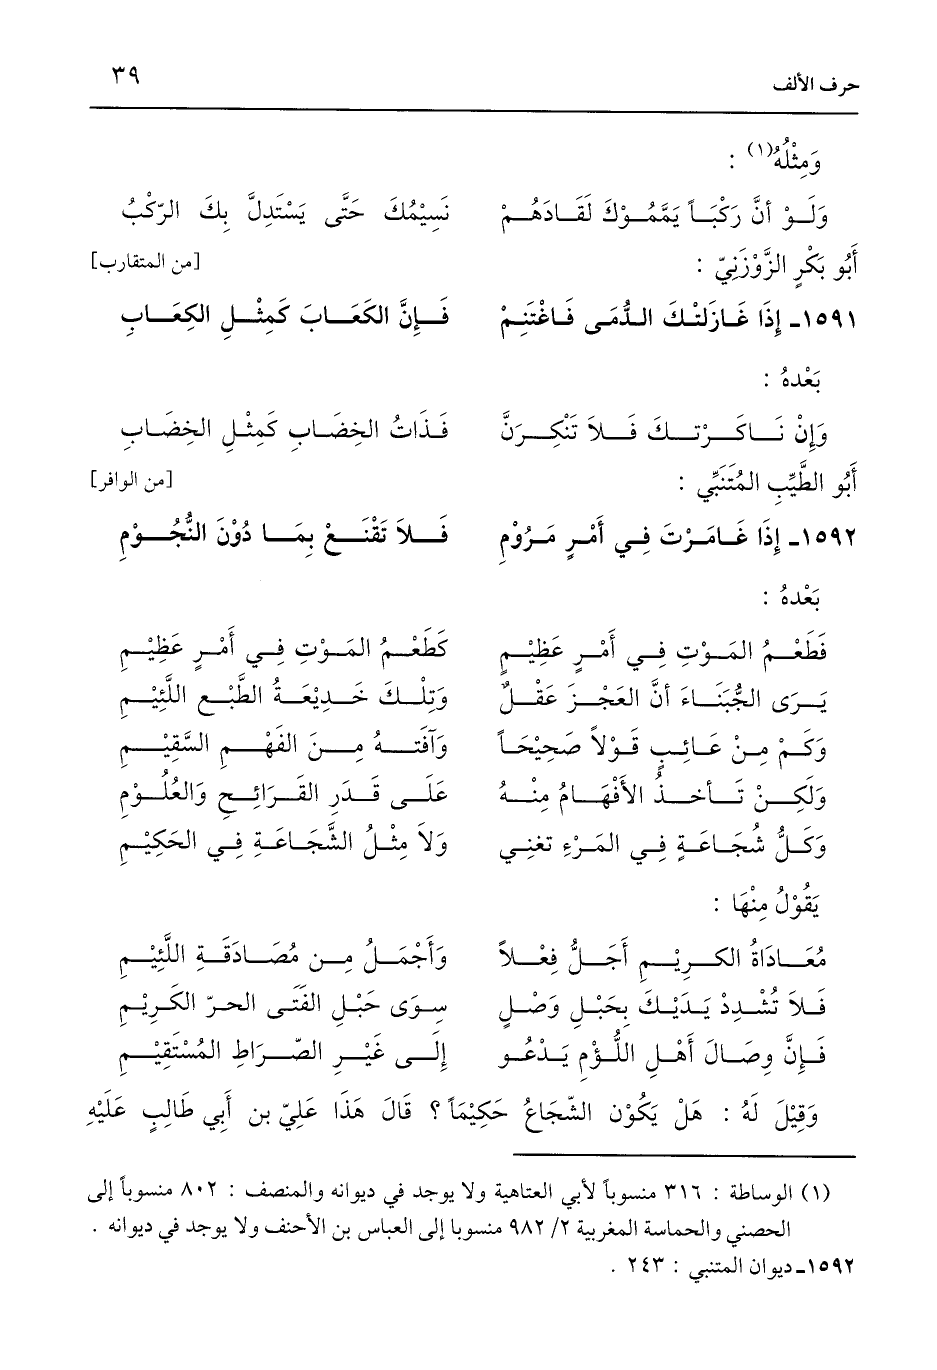 حرف الألف ٣٩
وَمِثْلُهُ(١) :
وَلَوْ أنَّ رَكْبَاً يَمَّمُوْكَ لَقَادَهُمْ نَسِيْمُكَ حَتَّى يَسْتَدِلَّ بِكَ الرّكْبُ
أَبُو بَكْرٍ الزَّوْزَنِيّ : [من المتقارب]
١٥٩١ـ إِذَا غَازَلَتْكَ الدُّمَى فَاغْتَنِمْ فَإِنَّ الكَعَابَ كَمِثْلِ الكِعَابِ
بَعْدهُ :
وَإِنْ نَاكَرَتْكَ فَلاَ تَنْكِرَنَّ فَذَاتُ الخِضَابِ كَمِثْلِ الخِضَابِ
أَبُو الطَّيِّبِ المُتَنَبِّي : [من الوافر]
١٥٩٢ـ إِذَا غَامَرْتَ فِي أَمْرٍ مَرُوْمٍ فَلاَ تَقْنَعْ بِمَا دُوْنَ النُّجُوْمِ
بَعْدهُ :
فَطَعْمُ المَوْتِ فِي أَمْرٍ عَظِيْمٍ كَطَعْمُ المَوْتِ فِي أَمْرٍ عَظِيْمِ
يَرَى الجُبَنَاءَ أنَّ العَجْزَ عَقْلٌ وَتِلْكَ خَدِيْعَةُ الطَّبْعِ اللَّئِيْمِ
وَكَمْ مِنْ عَائِبٍ قَوْلاً صَحِيْحَاً وَآفَتهُ مِنَ الفَهْمِ السَّقِيْمِ
وَلَكِنْ تَأخذُ الأَفْهَامُ مِنْهُ عَلَى قَدَرِ القَرَائِحِ وَالعُلُوْمِ
وَكَلُّ شُجَاعَةٍ فِي المَرْءِ تغنِي وَلاَ مِثْلُ الشَّجَاعَةِ فِي الحَكِيْمِ
يَقُوْلُ مِنْهَا :
مُعَادَاةُ الكَرِيْمِ أَجَلُّ فِعْلاً وَأَجْمَلُ مِن مُصَادَقَةِ اللَّئِيْمِ
فَلاَ تُشْدِدْ يَدَيْكَ بِحَبْلِ وَصْلٍ سِوَى حَبْلِ الفَتَى الحرّ الكَرِيْمِ
فَإِنَّ وِصَالَ أَهْلِ اللُّؤْمِ يَدْعُو إِلَى غَيْرِ الصِّرَاطِ المُسْتَقِيْمِ
وَقِيْلَ لَهُ : هَلْ يَكُوْن الشّجَاعُ حَكِيْمَاً ؟ قَالَ هَذَا عَلِيّ بن أَبِي طَالِبٍ عَلَيْهِ
(١) الوساطة : ٣١٦ منسوباً لأبي العتاهية ولا يوجد في ديوانه والمنصف : ٨٠٢ منسوباً إلى
الحصني والحماسة المغربية ٢/ ٩٨٢ منسوبا إلى العباس بن الأحنف ولا يوجد في ديوانه .
١٥٩٢ـ ديوان المتنبي : ٢٤٣ .